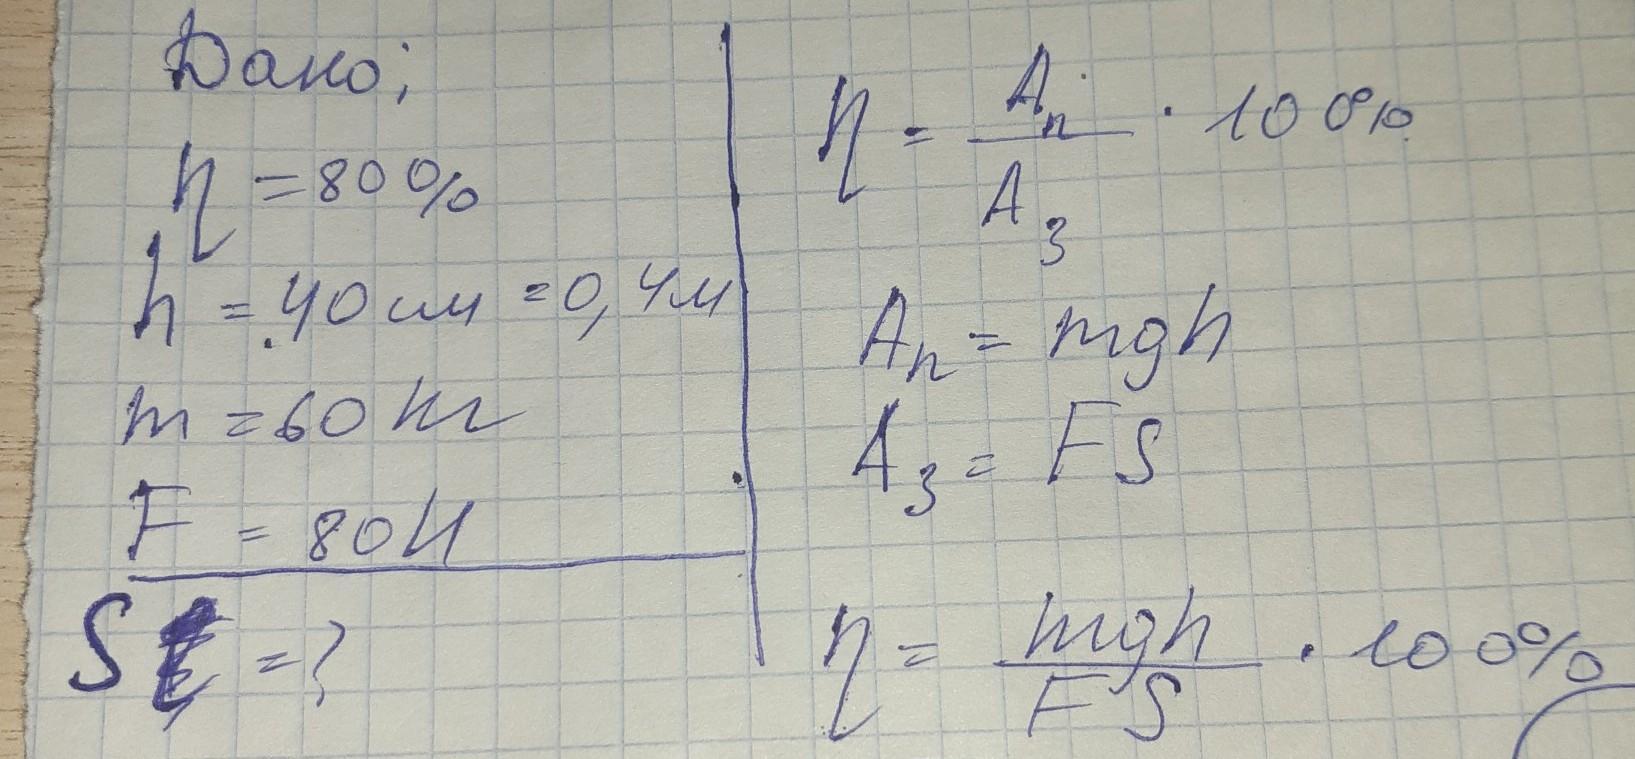 Дано;
η = 80%
h = 40 см = 0,4м
m = 60 кг
F = 80Н
S = ?
η = Aп / Aз · 100%
Aп = mgh
Aз = FS
η = mgh / FS · 100%